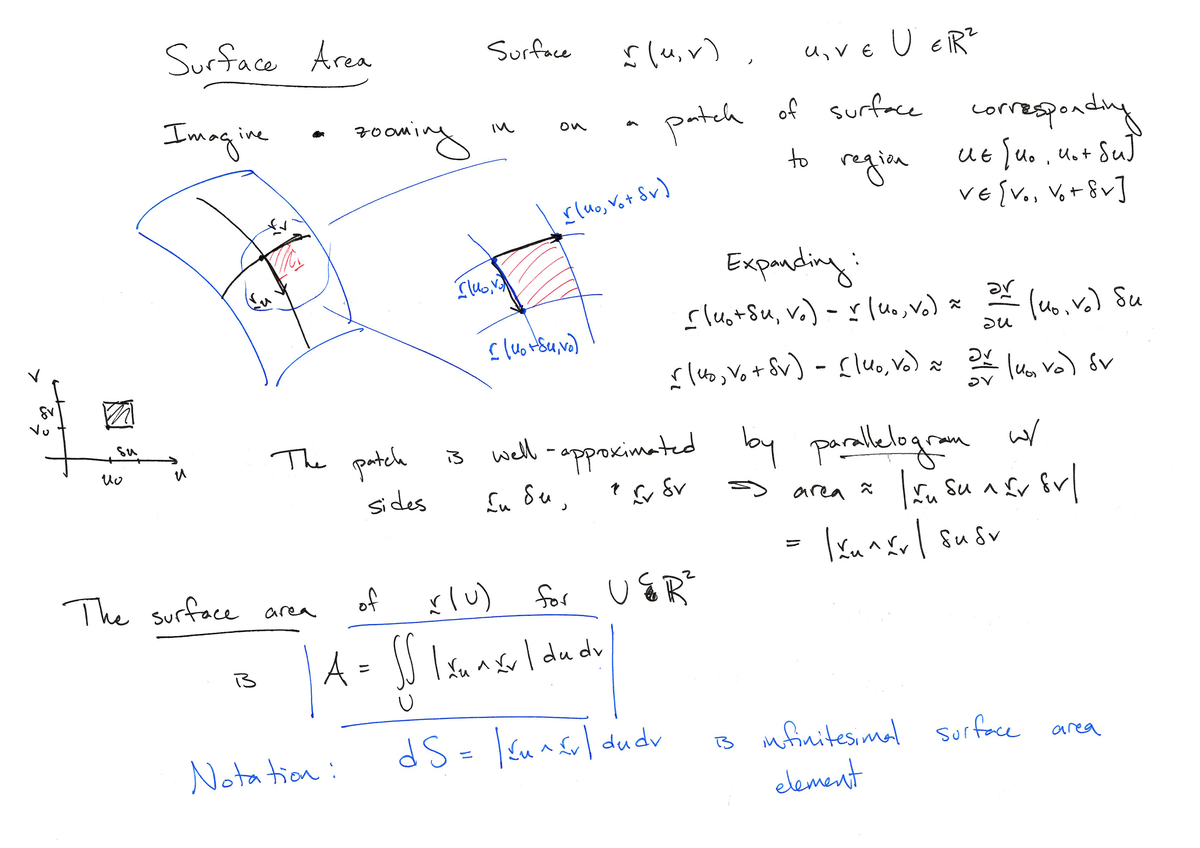 Surface Area Surface r(u,v), u,v ∈ U ∈ ℝ²
Imagine zooming in on a patch of surface corresponding
to region u ∈ [u₀, u₀+δu]
v ∈ [v₀, v₀+δv]
r_v
r_u
r(u₀,v₀+δv)
r(u₀,v₀)
r(u₀+δu,v₀)
Expanding:
r(u₀+δu, v₀) - r(u₀,v₀) ≈ ∂r/∂u (u₀,v₀) δu
r(u₀,v₀+δv) - r(u₀,v₀) ≈ ∂r/∂v (u₀,v₀) δv
v
δv
v₀
δu
u₀
u
The patch is well-approximated by parallelogram w/
sides r_u δu, r_v δv ⇒ area ≈ |r_u δu ∧ r_v δv|
= |r_u ∧ r_v| δu δv
The surface area of r(U) for U ⊆ ℝ²
is A = ∬_U |r_u ∧ r_v| du dv
Notation: dS = |r_u ∧ r_v| du dv is infinitesimal surface area
element